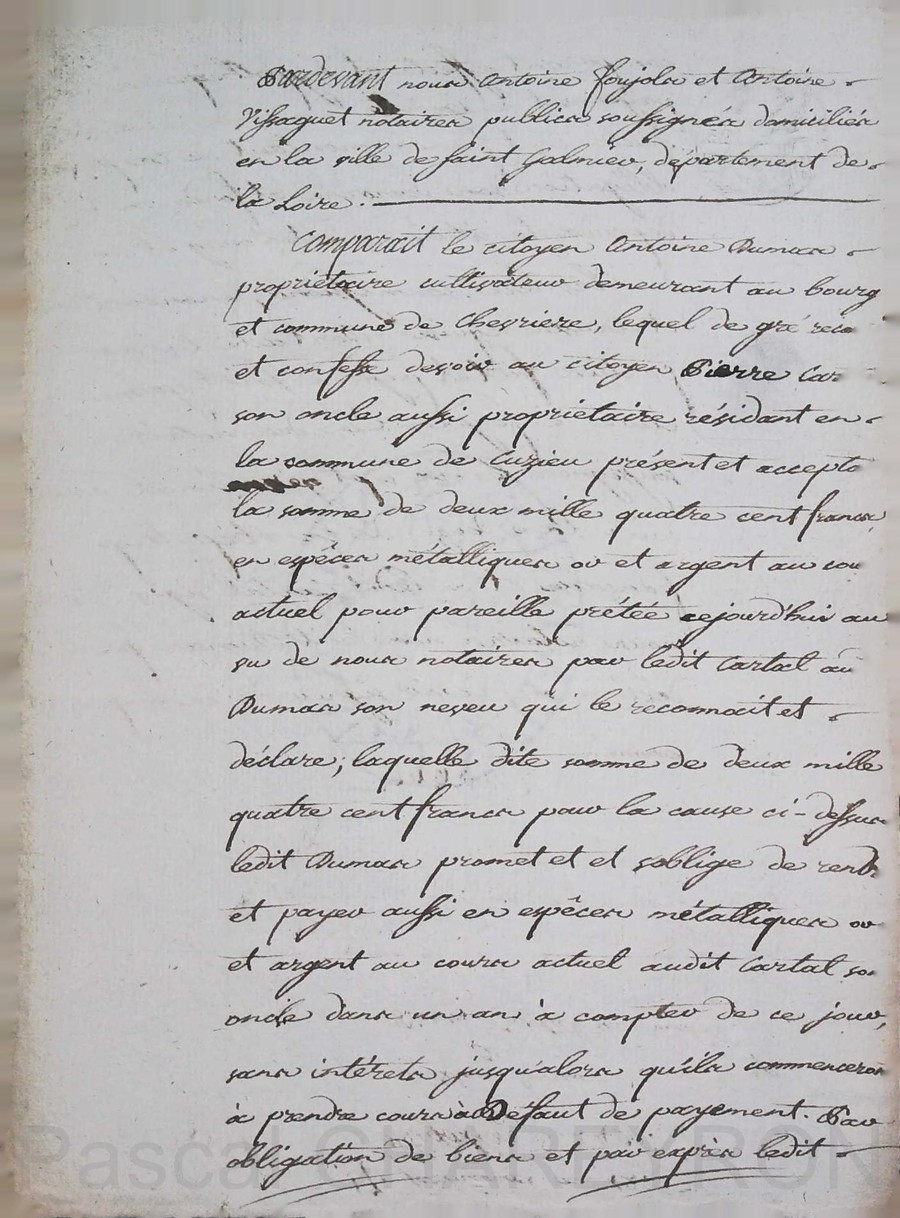 Pardevant nous Antoine Foujols et Antoine
Vissaguet notaires publics soussignés domiciliés
en la ville de Saint Galmier, département de
la Loire.
Comparait le citoyen Antoine Dumas
propriétaire cultivateur demeurant au bourg
et commune de Chevriere, lequel de gré reco
et confesse devoir au citoyen Pierre Car
son oncle aussi propriétaire résidant en
la commune de Cuzieu présent et accepta
la somme de deux mille quatre cent francs
en espêces métalliques or et argent au cou
actuel pour pareille prétée cejourd'hui au
vu de nous notaires par ledit Cartal au
Dumas son neveu qui le reconnoit et
déclare; laquelle dite somme de deux mille
quatre cent francs pour la cause ci-dessus
ledit Dumas promet et et s'oblige de rendr
et payer aussi en espêces métalliques or
et argent au cours actuel audit Cartal so
oncle dans un an à compter de ce jour,
sans intérets jusqu'alors qu'ils commenceron
à prendre cours à Défaut de payement. Par
obligation de biens et par exprès ledit
Pascal CHAREYRON